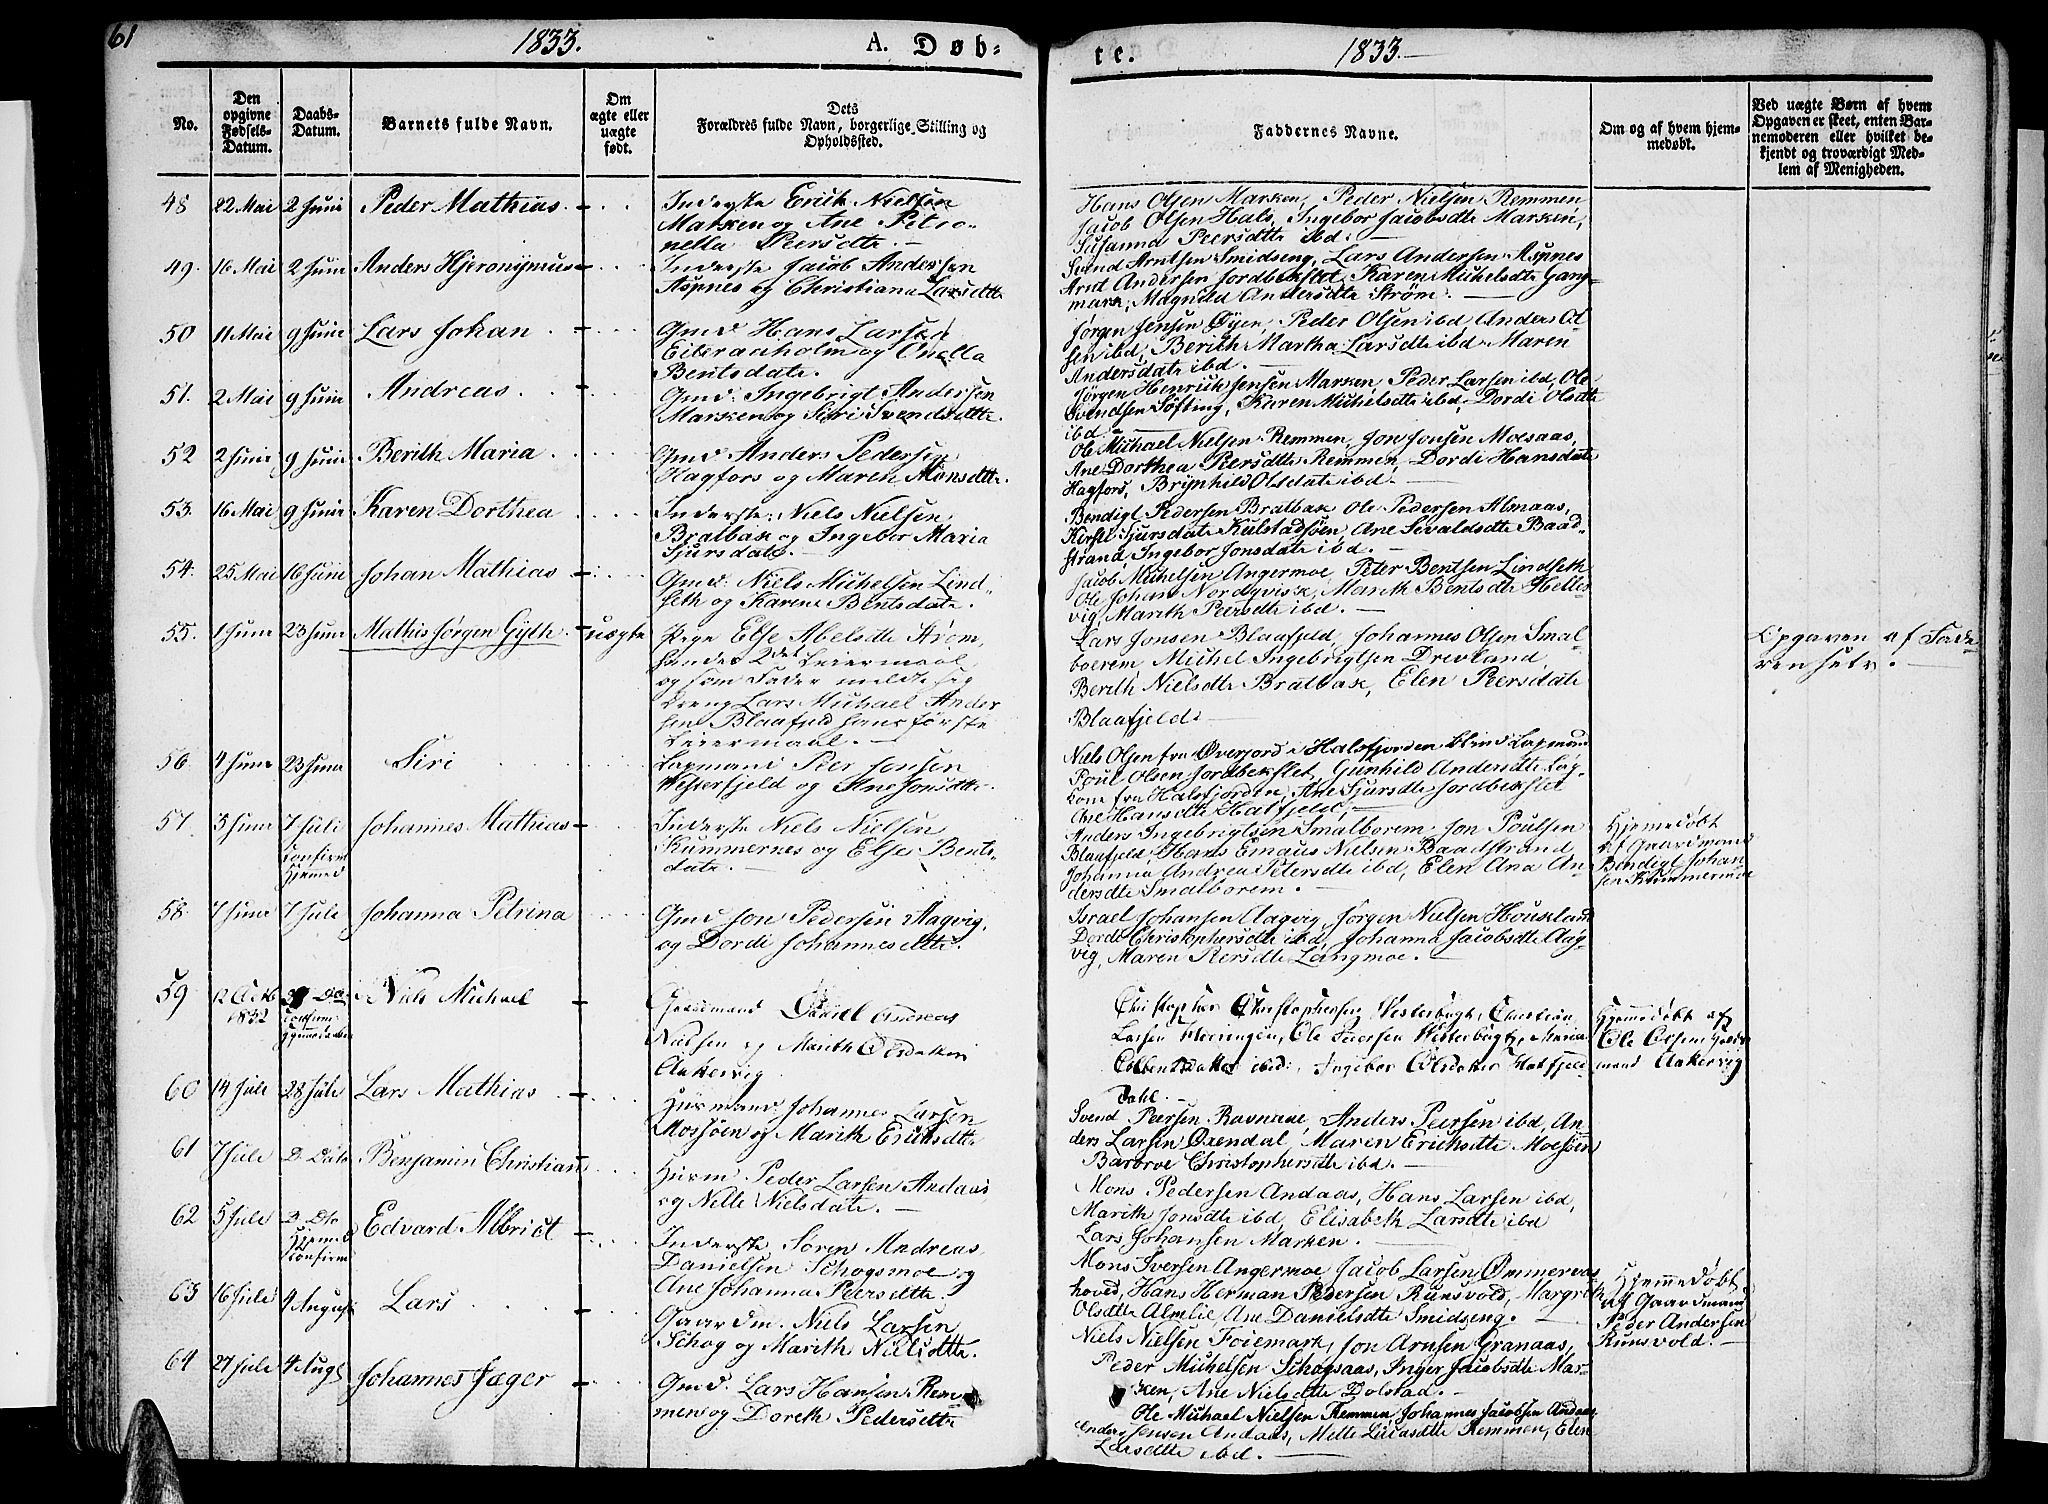 61
1833.
A. Døb-
te.
1833.
No.
Den opgivne Fødsels-Datum.
Daabs-Datum.
Barnets fulde Navn.
Om ægte eller uægte født.
Dets Forældres fulde Navn, borgerlige Stilling og Opholdssted.
Faddernes Navne.
Om og af hvem hjemmedøbt.
Ved uægte Børn af hvem Opgaven er skeet, enten Barnemoderen eller hvilket bekjendt og troværdigt Medlem af Menigheden.
48 22 Mai 2 Juni Peder Mathias
Inderste Erick Nielsen
Marken og Ane Petro-
nella Peersdtr.
Hans Olsen Marken, Peder Nielsen Remmen
Jacob Olsen Hals, Ingebor Jacobsdtr Marken,
Susanna Peersdtte ibd.
49. 16 Mai 2 Juni Anders Hjeronijmus
Inderste Jacob Andersen
Aspnes og Christiana Larsdtte
Svend Arntsen Smidseng, Lars Andersen Aspnes
Arnt Andersen Jordbekslet, Karen Michelsdtr Gang-
mark, Magnild Andersdtr Strøm.
50 11 Mai 9 Juni Lars Johan
Gmd Hans Larsen
Eiteraaholm og Onella
Bentsdatr.
Jørgen Jensen Øyen, Peder Olsen ibd, Anders Ol-
sen ibd, Berith Martha Larsdtr ibd, Maren
Andersdatr ibd.
51. 2 Mai 9 Juni Andreas
Gmd. Ingebrigt Andersen
Marken og Siri Svendsdtte.
Jørgen Henrick Jensen Marken, Peder Larsen ibd, Ole
Svendsen Søfting, Karen Michelsdtr ibd, Dordi Olsdtte
ibd.
52 2 Juni 9 Juni Berith Maria
Gmd Anders Pedersen
Hagfors og Maren Monsdtte.
Ole Michael Nielsen Remmen, Jon Jonsen Moesaas,
Ane Dorthea Peersdtte Remmen, Dordi Hansdatr
Hagfors, Brynhild Olsdatr ibd.
53. 16 Mai 9 Juni Karen Dorthea
Inderste Niels Nielsen
Bratbak og Ingebor Maria
Sjursdatr.
Bendigt Pedersen Bratbak Ole Pedersen Almaas,
Kirsti Sjursdatr Kulstadsøen, Ane Sivaldsdtr Baad-
strand, Ingebor Jonsdatr ibd.
54. 25 Mai 16 Juni Johan Mathias
Gmd. Niels Michelsen Lind-
seth og Karen Bentsdatr.
Jacob Michelsen Angermoe, Peter Bentsen Lindseth
Ole Johan Nordqvist, Marith Bentsdtr Helles-
vig, Marith Peersdtr ibd.
55. 1 Juni 23 Juni Mathis Jørgen Gyth. uægte
Pige Else Abelsdtr Strøm,
hendes 2det Leiermaal,
og som Fader meldte sig
Dreng Lars Michael Ander-
sen Blaafjeld hans første
Leiermaal.
Lars Jonsen Blaafjeld, Johannes Olsen Smal-
boerem, Michel Ingebrigtsen Drevland,
Berith Nielsdtr Bratbak, Elen Peersdatr
Blaafjeld.
Opgaven af Fade-
ren selv.
56 4 Juni 23 Juni Siri
Lapmand Peer Jonsen
Vesterfjeld og Ane Jonsdtte.
Niels Olsen fra Øverjord i Halsfjorden blind Lapmand
Poul Olsen Jordbekslet, Gunhild Andersdtr Lap-
kone fra Halsfjorden, Ane Sjursdtr Jordbekslet
Ane Hansdtr Hatfjeld,
57. 3 Juni 7 Juli confirm Hjemmed Johannes Mathias
Inderste Niels Nielsen
Kummernes og Else Bents-
datr.
Anders Ingebrigtsen Smalborem, Jon Poulsen
Blaafjeld, Hans Emaus Nielsen Baadstrand
Johanna Andrea Petersdtr ibd, Elen Ana An-
dersdtr Smalborem.
Hjemedøbt
af Gaardmand
Bendigt Johan-
sen Kummermoe
58. 7 Juni 7 Juli Johanna Petrina
Gmd Jon Pedersen Aagvig,
og Dordi Johannesdtte.
Israel Johansen Aagvig, Jørgen Nielsen Houkland
Dordi Christophersdtr ibd, Johanna Jacobsdtr Aag-
vig, Maren Peersdtr Langmoe.
59 12 Octb 1832 Niels Michael
Gaardmand Daniel Andreas
Nielsen og Marith Olsdatter
Aakervig.
Christopher Christophersen Vesterbugt, Christian
Larsen Herringen, Ole Peersen Westerbugt, Maria
ibid: Ingebor Olsdatter Hatfjeld-
dahl.
Hjemmedøbt af
Ole Olsen
mand Aakervig
60 14 Juli 28 Juli Lars Mathias
Huusmand Johannes Larsen
Mossøen og Marith Ericksdtte
Svend Peersen Ravnaae, Anders Peersen ibd, An-
ders Larsen Øxendal, Maren Ericksdtr Moessøen
Barbroe Christophersdtr ibd.
61 7 Juli D. Dato Benjamin Christian
Huusm Peder Larsen Andaas
og Nille Nielsdatr.
Mons Pedersen Andaas, Hans Larsen ibd,
Marith Jonsdtr ibd, Elisabeth Larsdtr ibd
Lars Johansen Marken.
62 5 Juli D. Dto Hjemmed Confirm Edvard Albrict
Inderste Søren Andreas
Danielsen Schogsmoe og
Ane Johanna Peersdtte.
Mons Iversen Angermoe, Jacob Larsen Ømmervas-
hoved, Hans Herman Pedersen Runsvold, Margreth
Olsdtte Almlie, Ane Danielsdtr Smidseng.
Hjemmedøbt
af Gaardmand
Peder Andersen
Runsvold.
63 16 Juli 4 August Lars
Gaardm. Niels Larsen
Schog og Marith Nielsdtte.
Niels Nielsen Foiemark, Jon Arnsen Granaas,
Peder Michelsen Schogsaas, Inger Jacobsdtr Mar-
ken, Ane Nielsdtte Dolstad.
64 27 Juli 4 Augt Johannes Jæger
Gmd. Lars Hansen Rem-
men og Doreth Pedersdtte
Ole Michael Nielsen Remmen, Johannes Jacobsen Andaas
Anders Jensen Andaas, Mette Lucasdtr Remmen, Elen
Larsdtte ibd.